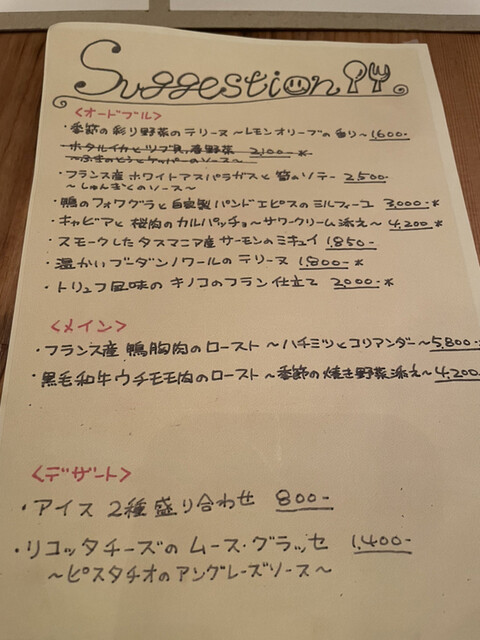 Suggestion
<オードブル>
・季節の彩り野菜のテリーヌ〜レモンオリーブの香り〜1,600-
ホタルイカとツブ貝、春野菜 2,100-*
〜ふきのとうとケッパーのソース〜
・フランス産ホワイトアスパラガスと筍のソテー 2,500-
〜しゅんぎくのソース〜
・鴨のフォワグラと自家製パンドエピスのミルフィーユ 3,000-*
・キャビアと桜肉のカルパッチョ〜サワークリーム添え〜 4,200-*
・スモークしたタスマニア産サーモンのミキュイ 1,850-
・温かいブーダンノワールのテリーヌ 1,800-*
・トリュフ風味のキノコのフラン仕立て 2,000-*
<メイン>
・フランス産鴨胸肉のロースト 〜ハチミツとコリアンダー〜5,800-
・黒毛和牛ウチモモ肉のロースト〜季節の焼き野菜添え〜4,200
<デザート>
・アイス 2種盛り合わせ 800-
・リコッタチーズのムース・グラッセ 1,400-
〜ピスタチオのアングレーズソース〜